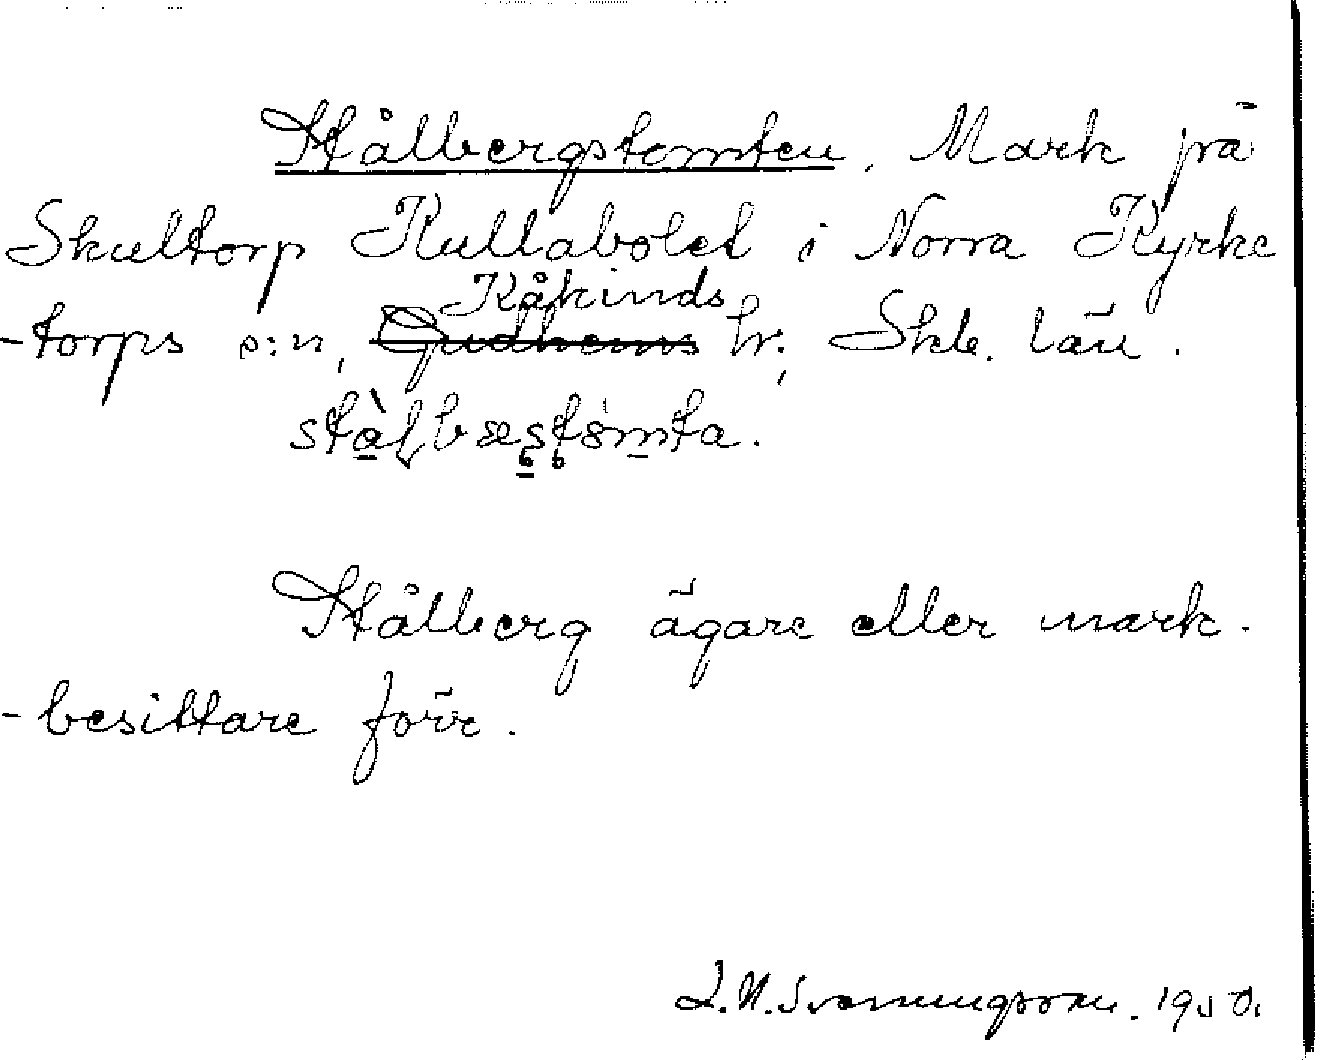 Stålbergstomten. Mark på
Skultorp Kullabolet i Norra Kyrke
-torps s:n, Gudhems Kåkinds hr; Skb. län.
stålbæstomta.
Stålberg ägare eller mark-
-besittare förr.
1950.